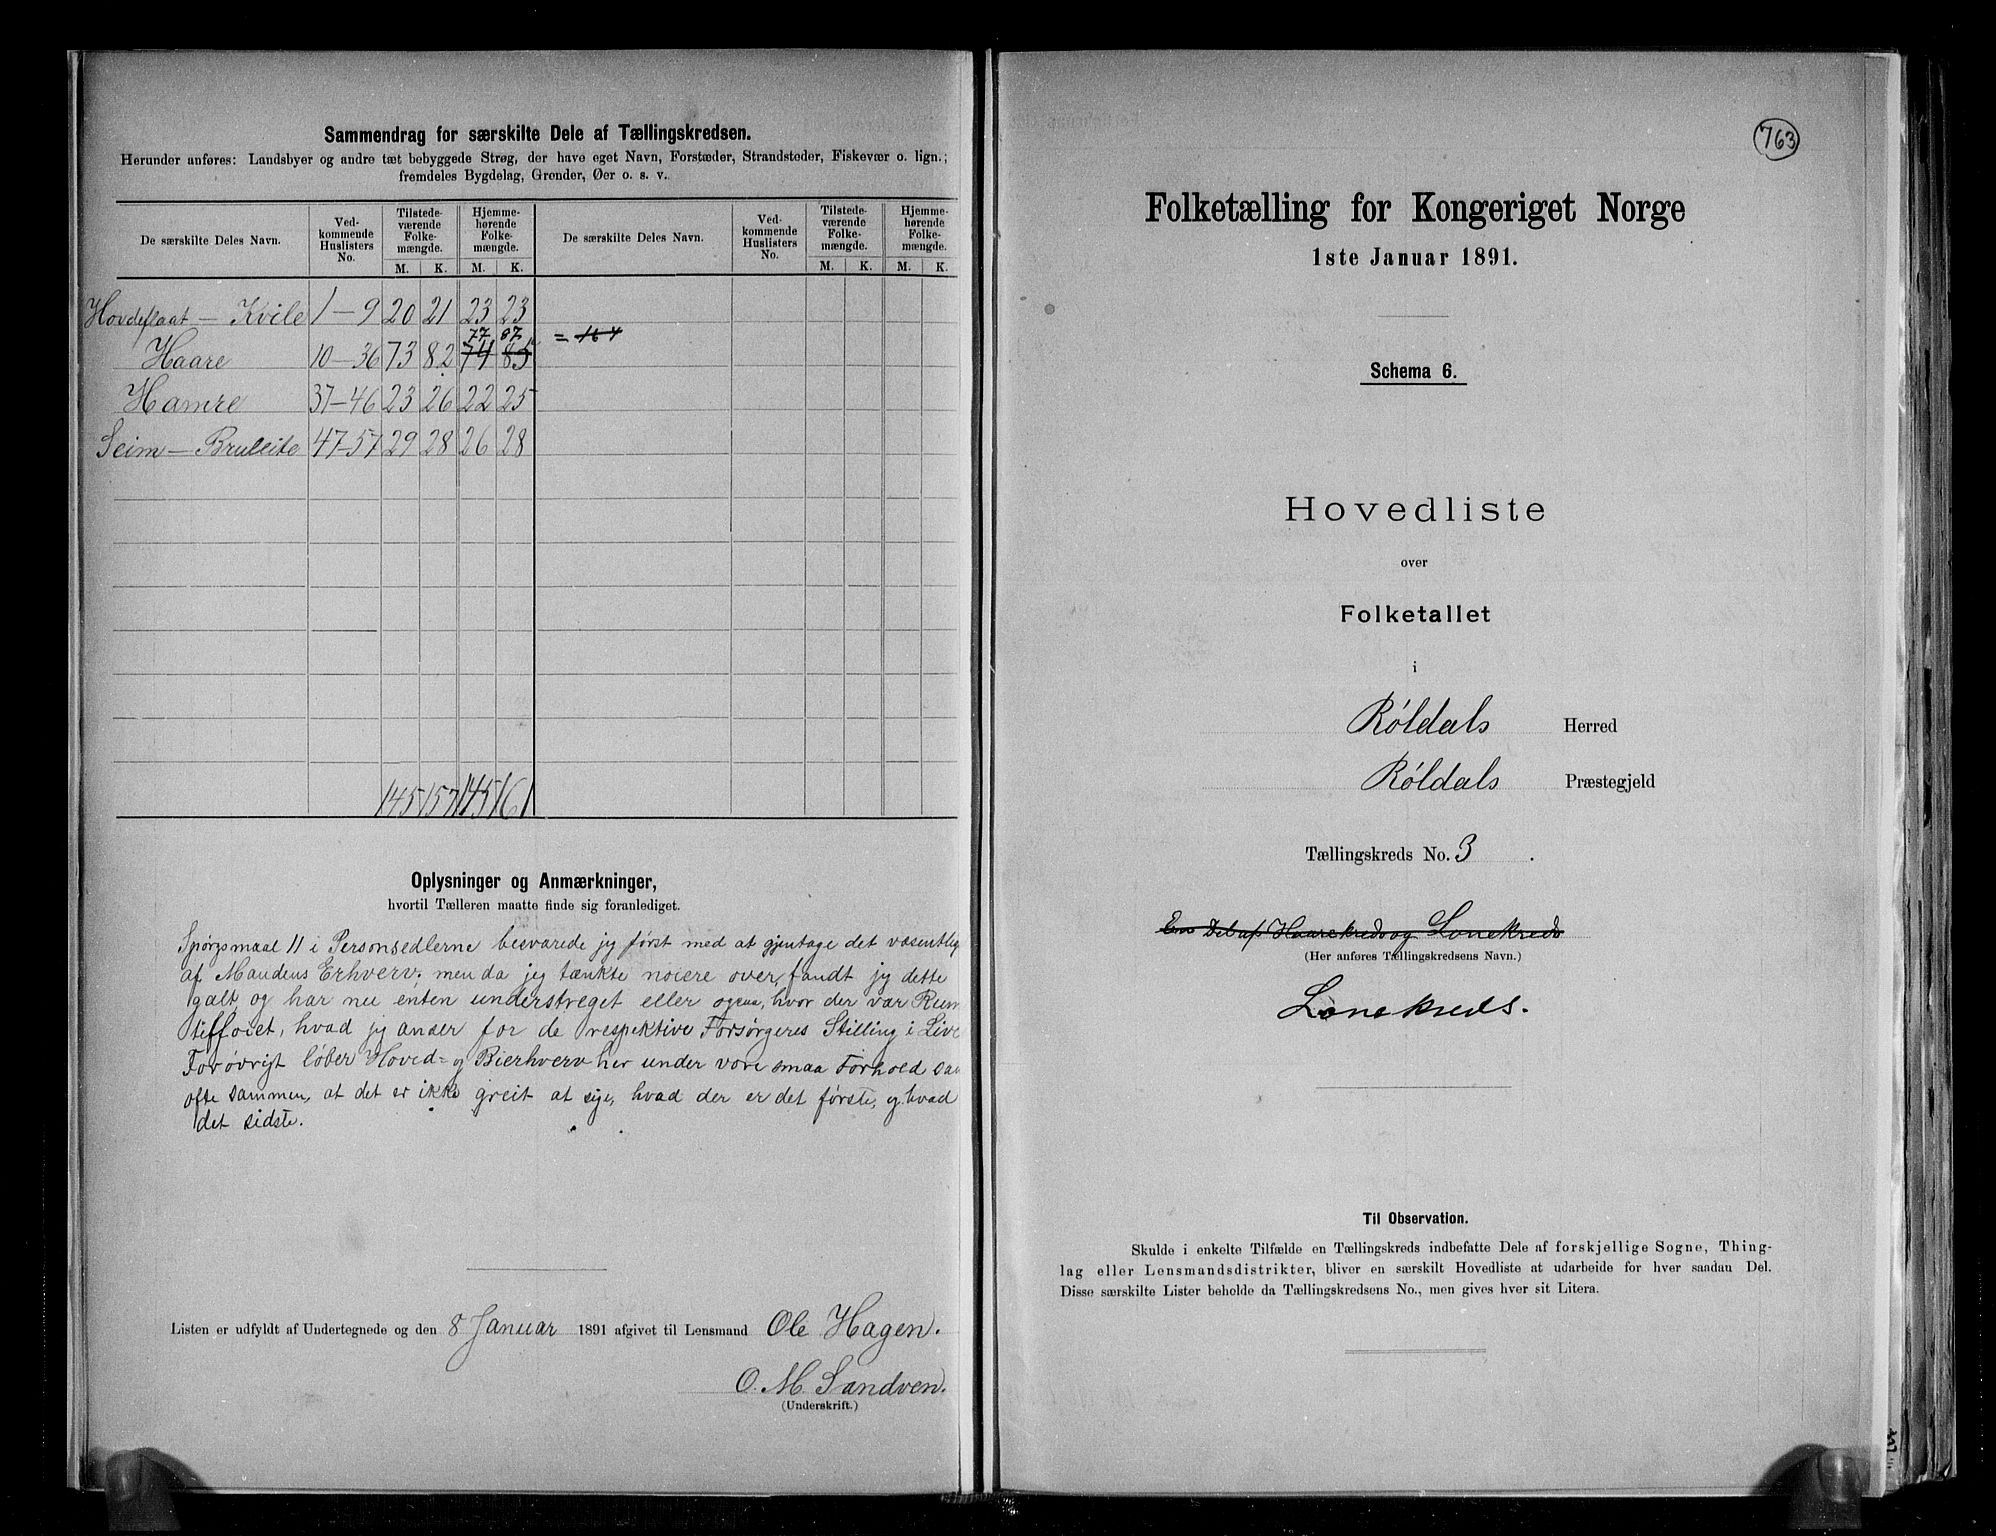 Sammendrag for særskilte Dele af Tællingskredsen.
Herunder anføres: Landsbyer og andre tæt bebyggede Strøg, der have eget Navn, Forstæder, Strandsteder, Fiskevær o. lign.;
fremdeles Bygdelag, Grender, Øer o. s. v.
De særskilte Deles Navn. Ved-kommende Huslisters No. Tilstede-værende Folke-mængde. Hjemme-hørende Folke-mængde. De særskilte Deles Navn. Ved-kommende Huslisters No. Tilstede-værende Folke-mængde. Hjemme-hørende Folke-mængde.
M. K. M. K. M. K. M. K.
Hovdeflaat — Kvile 1—9 20 21 23 23
77 87 = 164
Haare 10—36 73 82 74 85
Hamre 37—46 23 26 22 25
Seim — Bruleite 47—57 29 28 26 28
145 157 145 161
Oplysninger og Anmærkninger,
hvortil Tælleren maatte finde sig foranlediget.
Spørgsmaal 11 i Personsedlerne besvarede jeg først med at gjentage det væsentlig
af Mandens Erhverv; men da jeg tænkte nøiere over, fandt jeg dette
galt og har nu enten understreget eller ogsaa, hvor der var Rum
tilføiet, hvad jeg anser for de respektive Forsørgeres Stilling i Live
Forøvrigt løber Hoved- og Bierhverv her under vore smaa Forhold saa
ofte sammen, at det er ikke greit at sige, hvad der er det første, og hvad
det sidste.
Listen er udfyldt af Undertegnede og den 8 Januar 1891 afgivet til Lensmand Ole Hagen.
O. M. Sandven.
(Underskrift.)
763
Folketælling for Kongeriget Norge
1ste Januar 1891.
Schema 6.
Hovedliste
over
Folketallet
i
Røldals Herred
Røldals Præstegjeld
Tællingskreds No. 3.
En Del af Haarekreds og Lonekreds
(Her anføres Tællingskredsens Navn.)
Lonekreds.
Til Observation.
Skulde i enkelte Tilfælde en Tællingskreds indbefatte Dele af forskjellige Sogne, Thing-
lag eller Lensmandsdistrikter, bliver en særskilt Hovedliste at udarbeide for hver saadan Del.
Disse særskilte Lister beholde da Tællingskredsens No., men gives hver sit Litera.